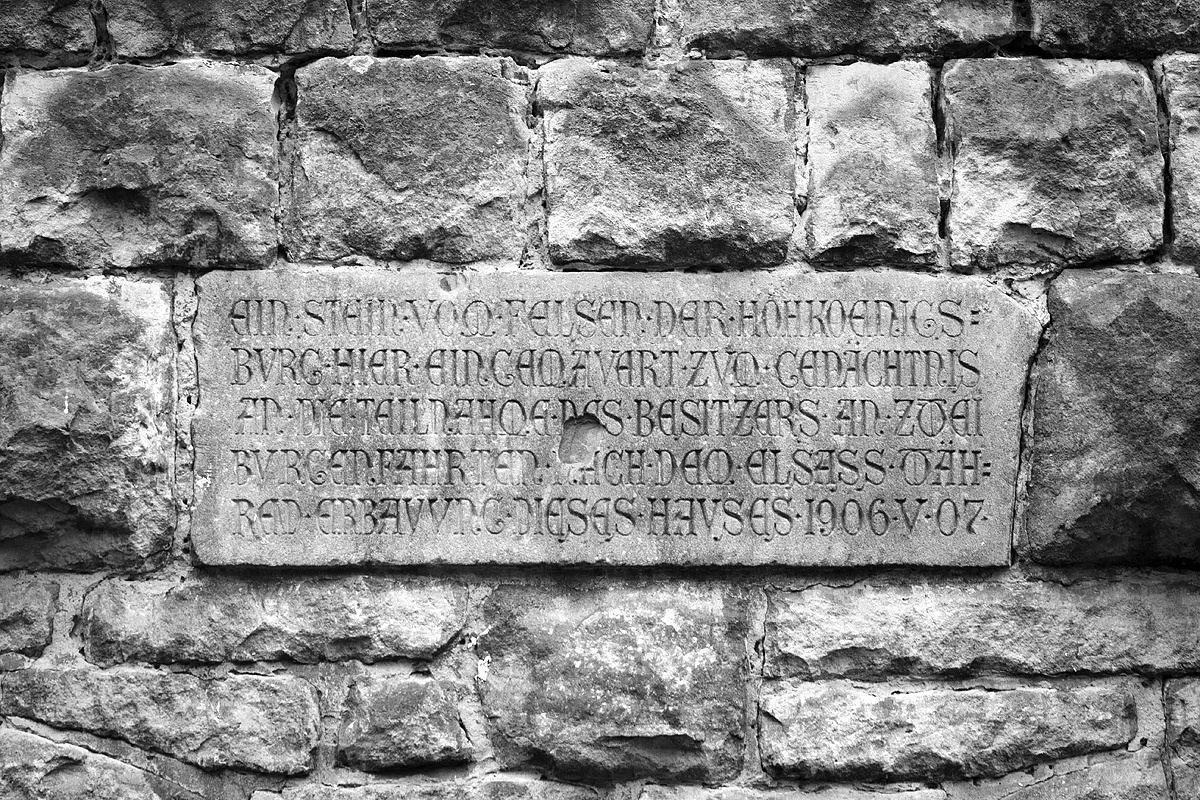 EIN·STEIN·VOM·FELSEN·DER·HOHKOENIGS=
BVRG·HIER·EINGEMAVERT·ZVM·GEDÄCHTNIS
AN·DIE·TEILNAHME·DES·BESITZERS·AN·ZWEI
BVRGENFAHRTEN·NACH·DEM·ELSASS·WÄH=
REND·ERBAVVNG·DIESES·HAVSES·1906·V·07·